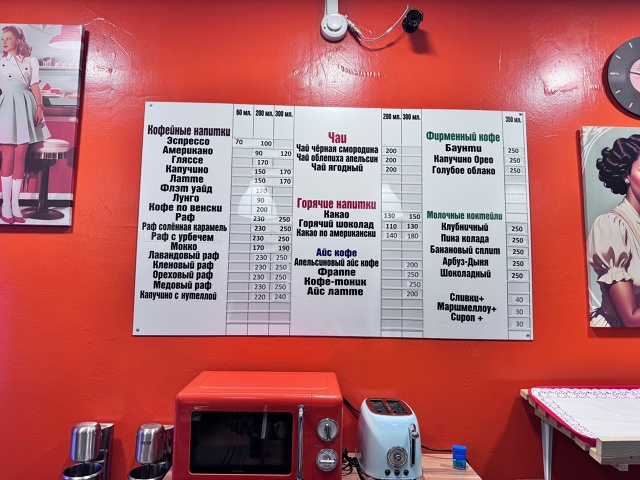 60 мл. 200 мл. 300 мл.
Кофейные напитки
Эспрессо 70 100
Американо 90 120
Гляссе 170
Капучино 150 170
Латте 150 170
Флэт уайд 170
Лунго 90
Кофе по венски 200
Раф 230 250
Раф солёная карамель 230 250
Раф с урбечем 230 250
Мокко 170 190
Лавандовый раф 230 250
Кленовый раф 230 250
Ореховый раф 230 250
Медовый раф 230 250
Капучино с нутеллой 220 240
200 мл. 300 мл.
Чаи
Чай чёрная смородина 200
Чай облепиха апельсин 200
Чай ягодный 200
Горячие напитки
Какао 130 150
Горячий шоколад 110 130
Какао по американски 140 180
Айс кофе
Апельсиновый айс кофе 200
Фраппе 250
Кофе-тоник 250
Айс латте 200
350 мл.
Фирменный кофе
Баунти 250
Капучино Орео 250
Голубое облако 250
Молочные коктейли
Клубничный 250
Пина колада 250
Банановый сплит 250
Арбуз-Дыня 250
Шоколадный 250
Сливки+ 40
Маршмеллоу+ 30
Сироп + 30